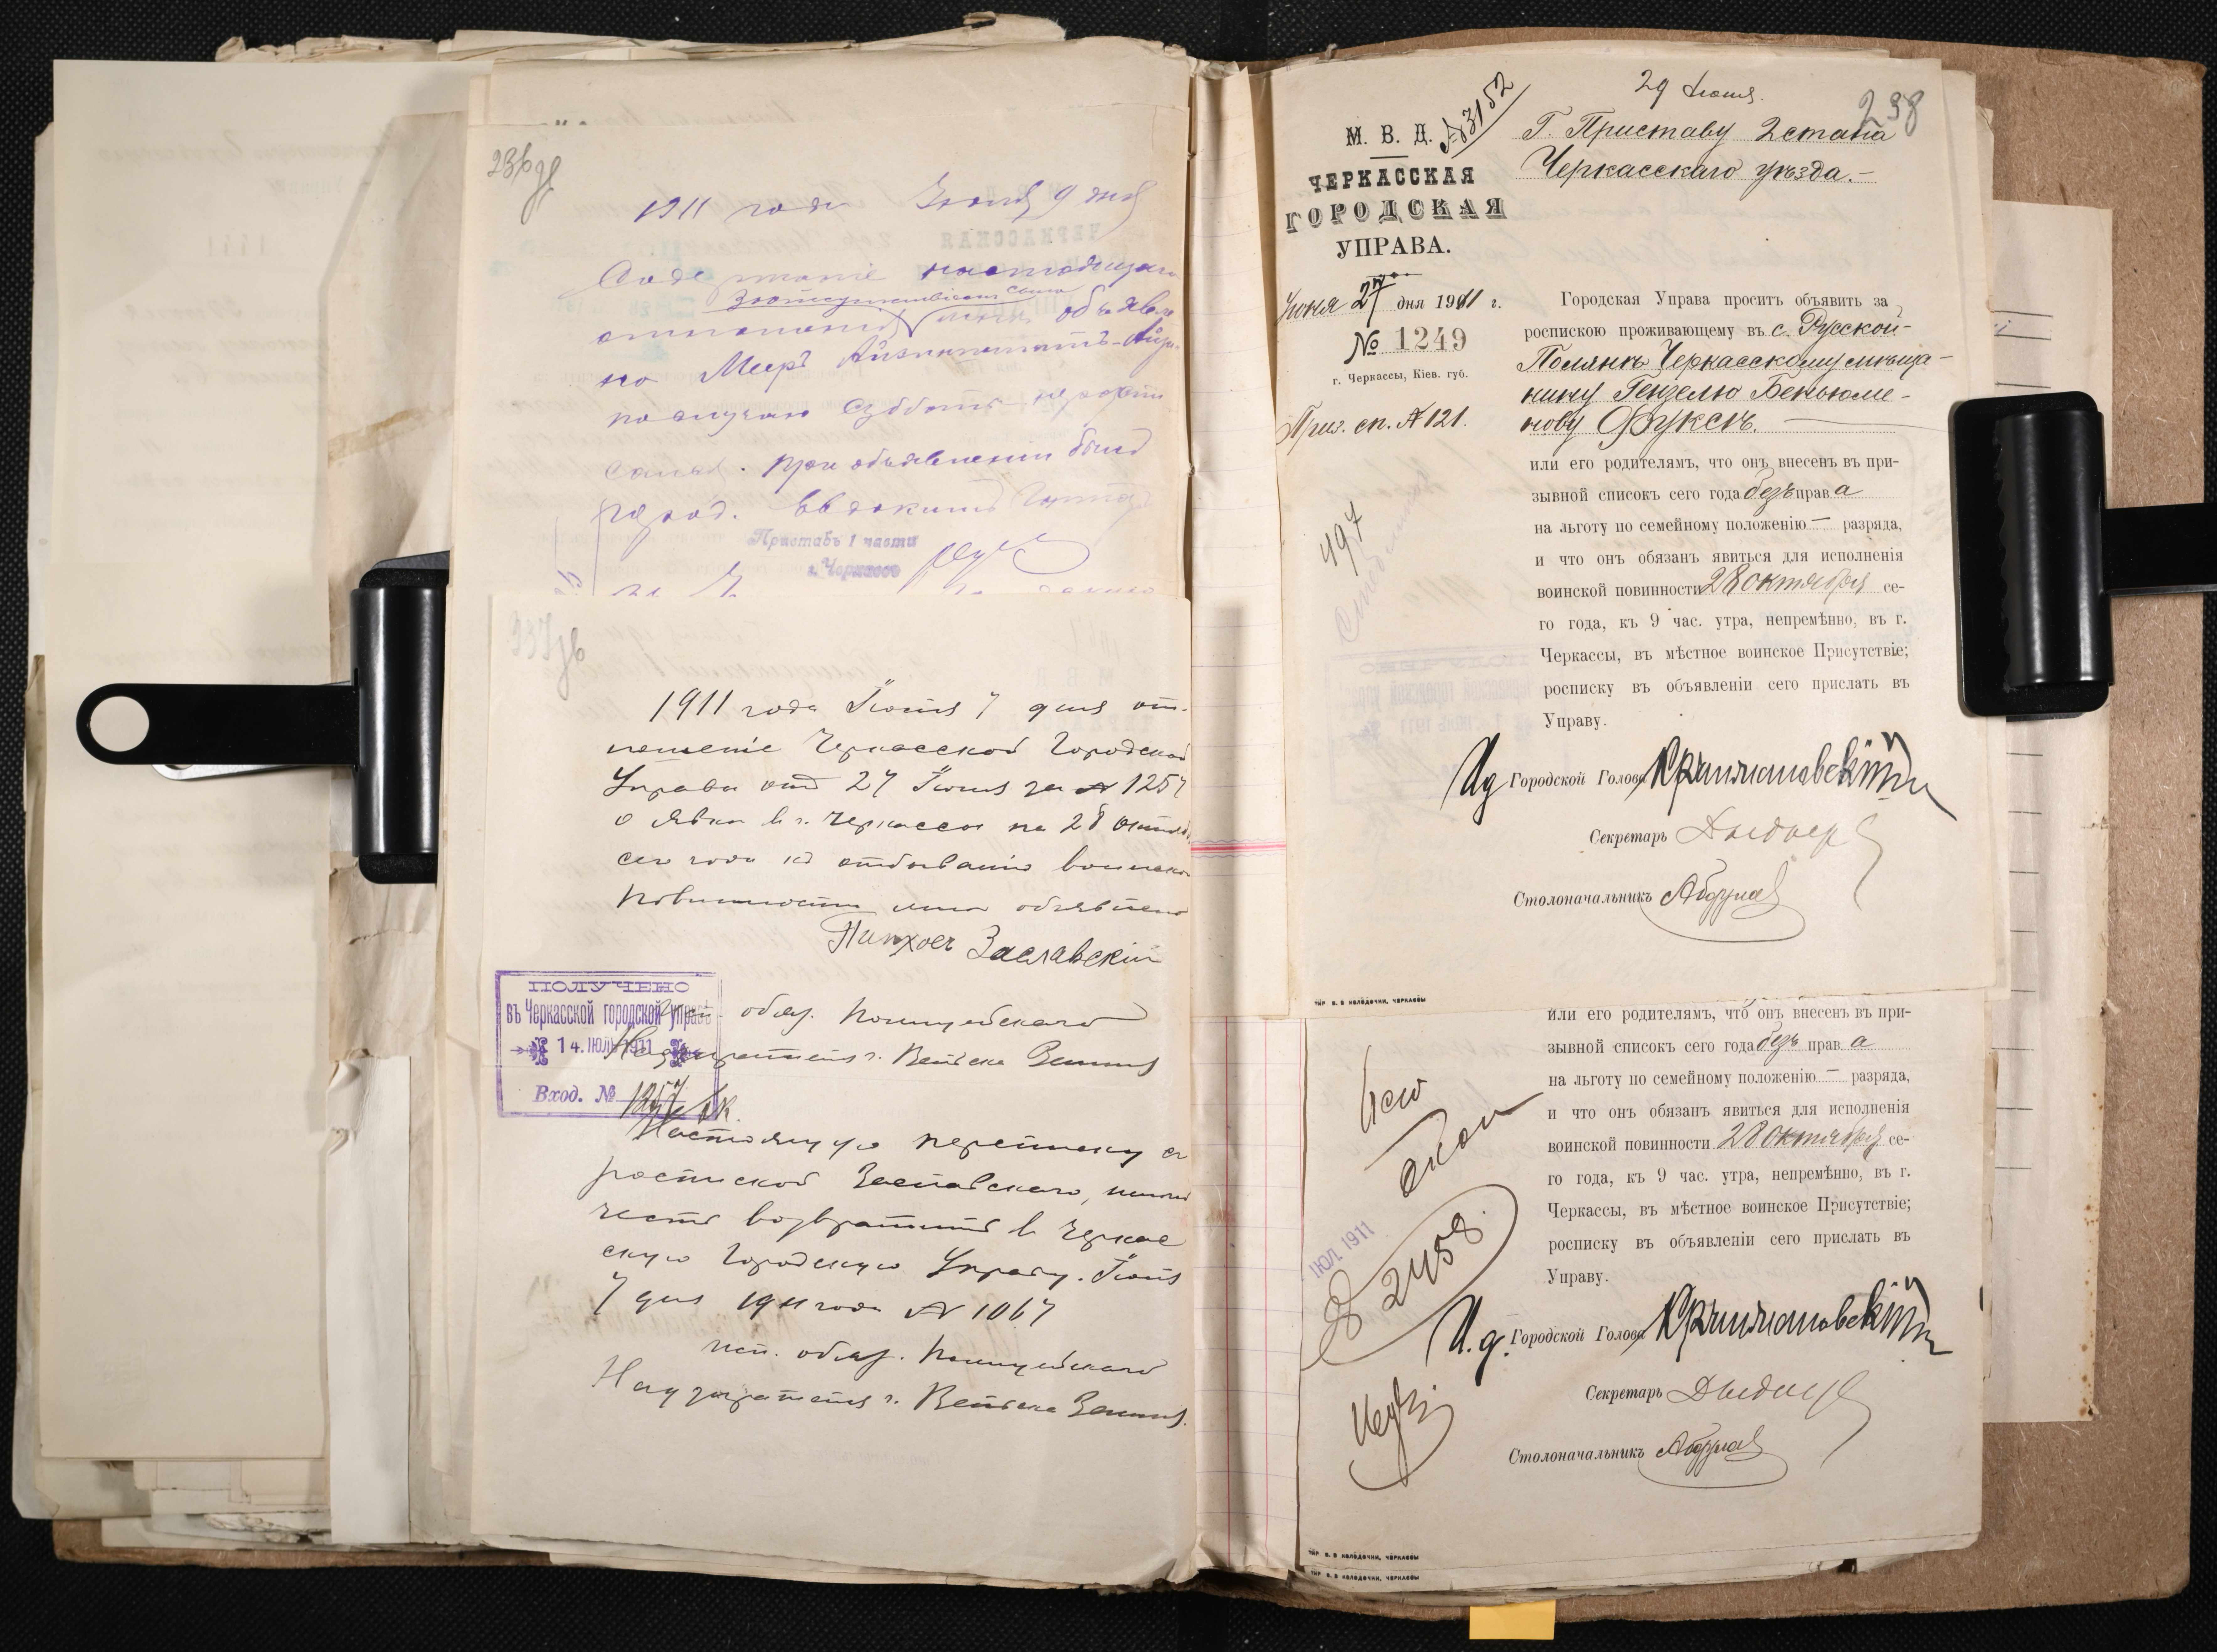 236 об
1911 года Іюля 9 дня
Содержаніе настоящаго
за отсутствіем сына
отношенія объявле
но Мееръ
по случаю субботы
При объявленіи былъ
город. Евдокимъ
Приставъ 1 части
г. Черкассъ
237 об
1911 года Іюля 7 дня от-
ношеніе Черкасской Городской
Управы отъ 27 Іюня за № 1257
о явке в г. Черкассы на 28 октяб
сего года къ отбыванію воинско
повинности мнѣ объявлено
Пинхосъ Заславскій
Исп. обяз. Полицейскаго
Надзирателя г.
ПОЛУЧЕНО
въ Черкасской городской управѣ
14. ІЮЛ 1911
Вход. №
Настоящую переписку съ
роспиской Заславскаго, имѣю
честь возвратить в Черкас
скую Городскую Управу. Іюля
7 дня 1911 года № 1067
исп. обяз. Полицейскаго
Надзирателя г.
29 Іюня.
238
№ 3152
М. В. Д.
ЧЕРКАССКАЯ
ГОРОДСКАЯ
УПРАВА.
Іюня 27 дня 1911 г.
№ 1249
г. Черкассы, Кіев. губ.
Приз. сп. № 121.
497
Г. Приставу 2 стана
Черкасскаго уѣзда.-
Городская Управа проситъ объявить за
роспискою проживающему въ с. Русской-
Полянѣ Черкасскому мѣща-
нину Гензелю Беньюме-
нову Фуксъ.
или его родителямъ, что онъ внесенъ въ при-
зывной списокъ сего года безъ права
на льготу по семейному положенію — разряда,
и что онъ обязанъ явиться для исполненія
воинской повинности 28 октября се-
го года, къ 9 час. утра, непремѣнно, въ г.
Черкассы, въ мѣстное воинское Присутствіе;
росписку въ объявленіи сего прислать въ
Управу.
И д Городской Голова
Секретарь
Столоначальникъ
ТИР. В. В КОЛОДОЧКИ, ЧЕРКАССЫ
или его родителямъ, что онъ внесенъ въ при-
зывной списокъ сего года безъ права
на льготу по семейному положенію — разряда,
и что онъ обязанъ явиться для исполненія
воинской повинности 28 октября се-
го года, къ 9 час. утра, непремѣнно, въ г.
Черкассы, въ мѣстное воинское Присутствіе;
росписку въ объявленіи сего прислать въ
Управу.
ІЮЛ 1911
2458
И. д. Городской Голова
Секретарь
Столоначальникъ
ТИР. В. В КОЛОДОЧКИ, ЧЕРКАССЫ
ТИР. В. В КОЛОДОЧКИ, ЧЕРКАССЫ